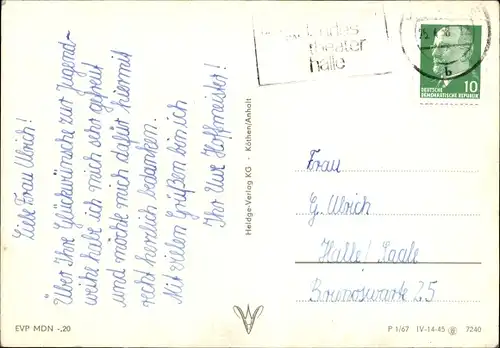 Liebe Frau Ulrich!
Über Ihre Glückwünsche zur Jugend-
weihe habe ich mich sehr gefreut
und möchte mich dafür hiermit
recht herzlich bedanken.
Mit vielen Grüßen bin ich
Ihr Uwe Hoffmeister!
Heldge-Verlag KG · Köthen/Anhalt
theater
halle
25.
DEUTSCHE
DEMOKRATISCHE REPUBLIK
10
Frau
G. Ulrich
Halle/Saale
Brunoswarte 25
EVP MDN -,20
P 1/67 IV-14-45 7240